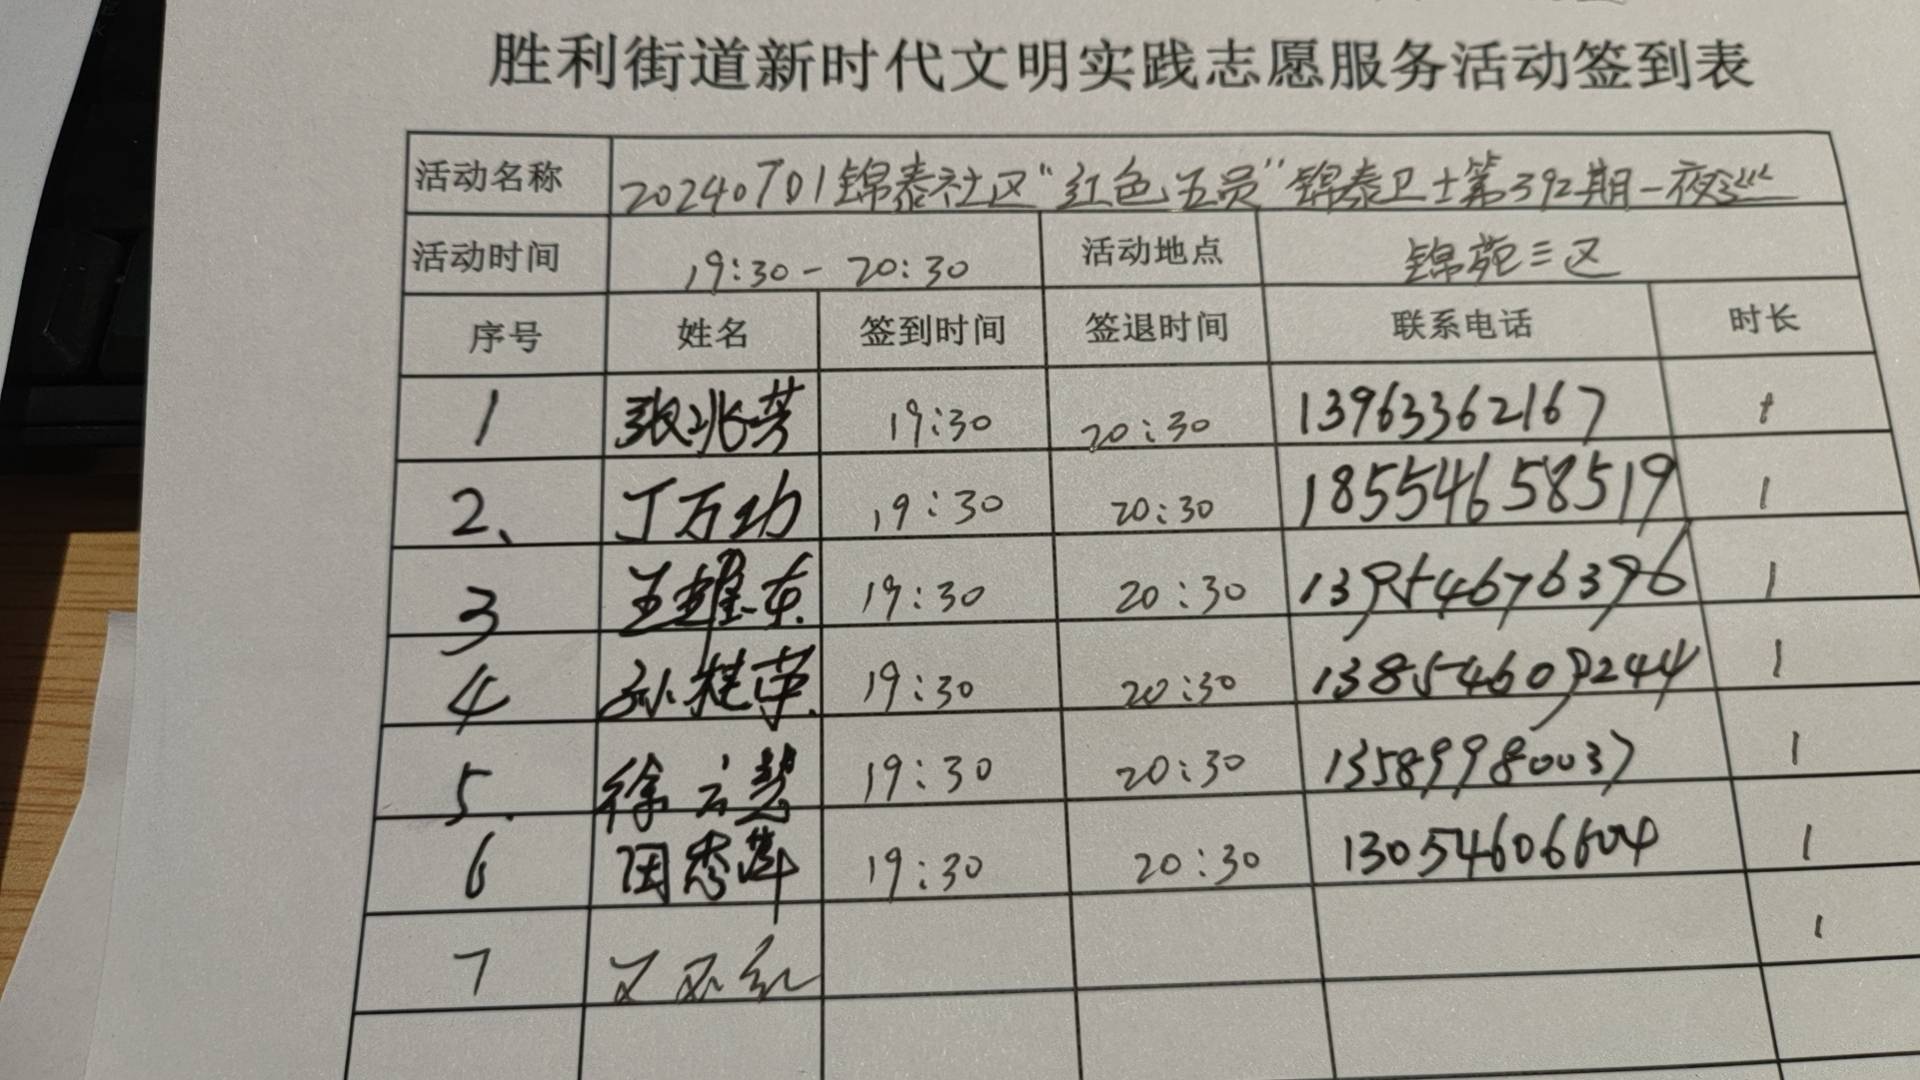 胜利街道新时代文明实践志愿服务活动签到表
活动名称 20240701锦泰社区“红色五员”锦泰卫士第392期-夜巡
活动时间 19:30-20:30 活动地点 锦苑三区
序号 姓名 签到时间 签退时间 联系电话 时长
1 张兆芳 19:30 20:30 13963362167 1
2、 丁万功 19:30 20:30 18554658519 1
3 王建东 19:30 20:30 13954676396 1
4 孙桂英 19:30 20:30 13854609244 1
5. 徐云慧 19:30 20:30 13589980037 1
6 田秀萍 19:30 20:30 13054606604 1
7 1